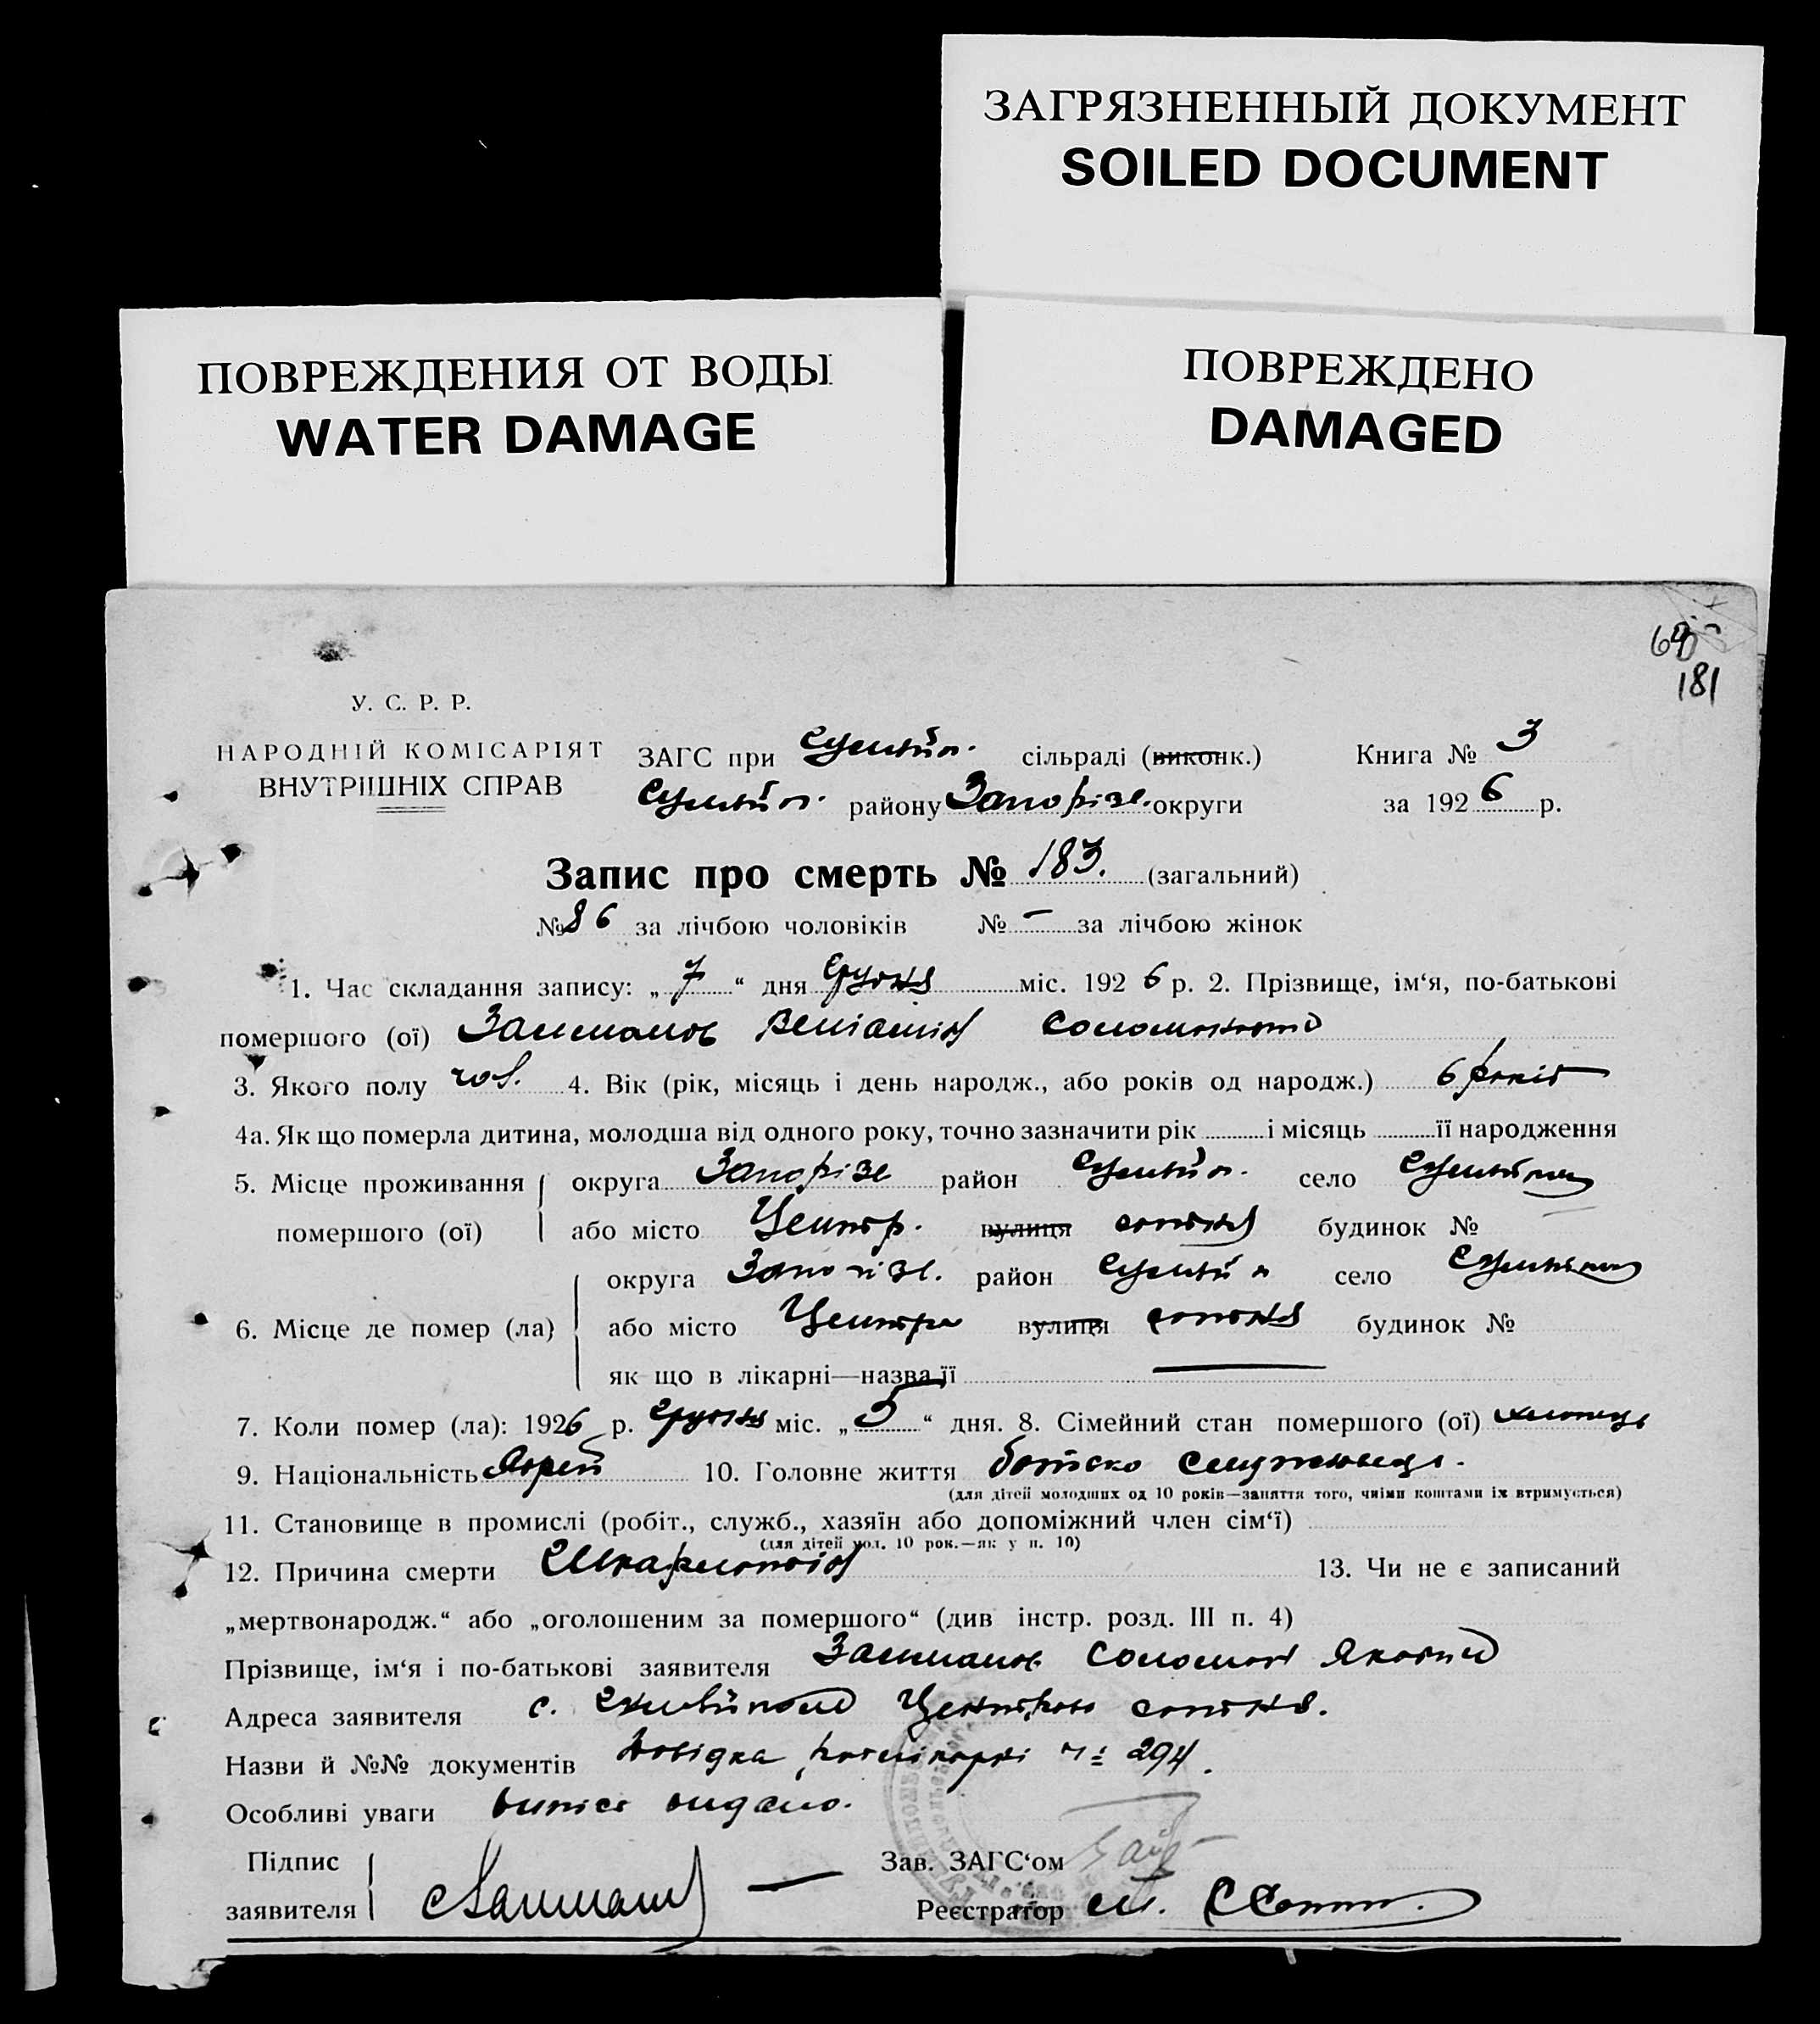 ЗАГРЯЗНЕННЫЙ ДОКУМЕНТ
SOILED DOCUMENT
ПОВРЕЖДЕНИЯ ОТ ВОДЫ
WATER DAMAGE
ПОВРЕЖДЕНО
DAMAGED
181
У. С. Р. Р.
НАРОДНІЙ КОМІСАРІЯТ
ВНУТРІШНІХ СПРАВ
ЗАГС при сільраді (виконк.) Книга № 3
району Запоріз. округи за 1926 р.
Запис про смерть № 183. (загальний)
№ 86 за лічбою чоловіків № – за лічбою жінок
1. Час складання запису: „ 7 “ дня грудня міс. 1926 р. 2. Прізвище, ім‘я, по-батькові
помершого (ої) Веніамін Соломонов
3. Якого полу чол. 4. Вік (рік, місяць і день народж., або років од народж.) 6 років
4а. Як що померла дитина, молодша від одного року, точно зазначити рік і місяць її народження
5. Місце проживання округа Запорізь район село
помершого (ої) або місто Центр. вулиця сотня будинок №
округа Запоріз. район село
6. Місце де помер (ла) або місто Центр вулиця сотня будинок №
як що в лікарні—назва її
7. Коли помер (ла): 1926 р. грудня міс. „ 5 “ дня. 8. Сімейний стан помершого (ої) хлопець
9. Національність Яврей 10. Головне життя батько
(для дітей молодших од 10 років—заняття того, чиїми коштами їх втримується)
11. Становище в промислі (робіт., служб., хазяїн або допоміжний член сім‘ї)
(для дітей мол. 10 рок.—як у п. 10)
12. Причина смерти Шкарлотін 13. Чи не є записаний
„мертвонародж.“ або „оголошеним за помершого“ (див інстр. розд. III п. 4)
Прізвище, ім‘я і по-батькові заявителя Соломон Яковл
Адреса заявителя с. сотня.
Назви й №№ документів Довідка 294.
Особливі уваги Випис видано.
Підпис
заявителя
Зав. ЗАГС‘ом
Реєстратор